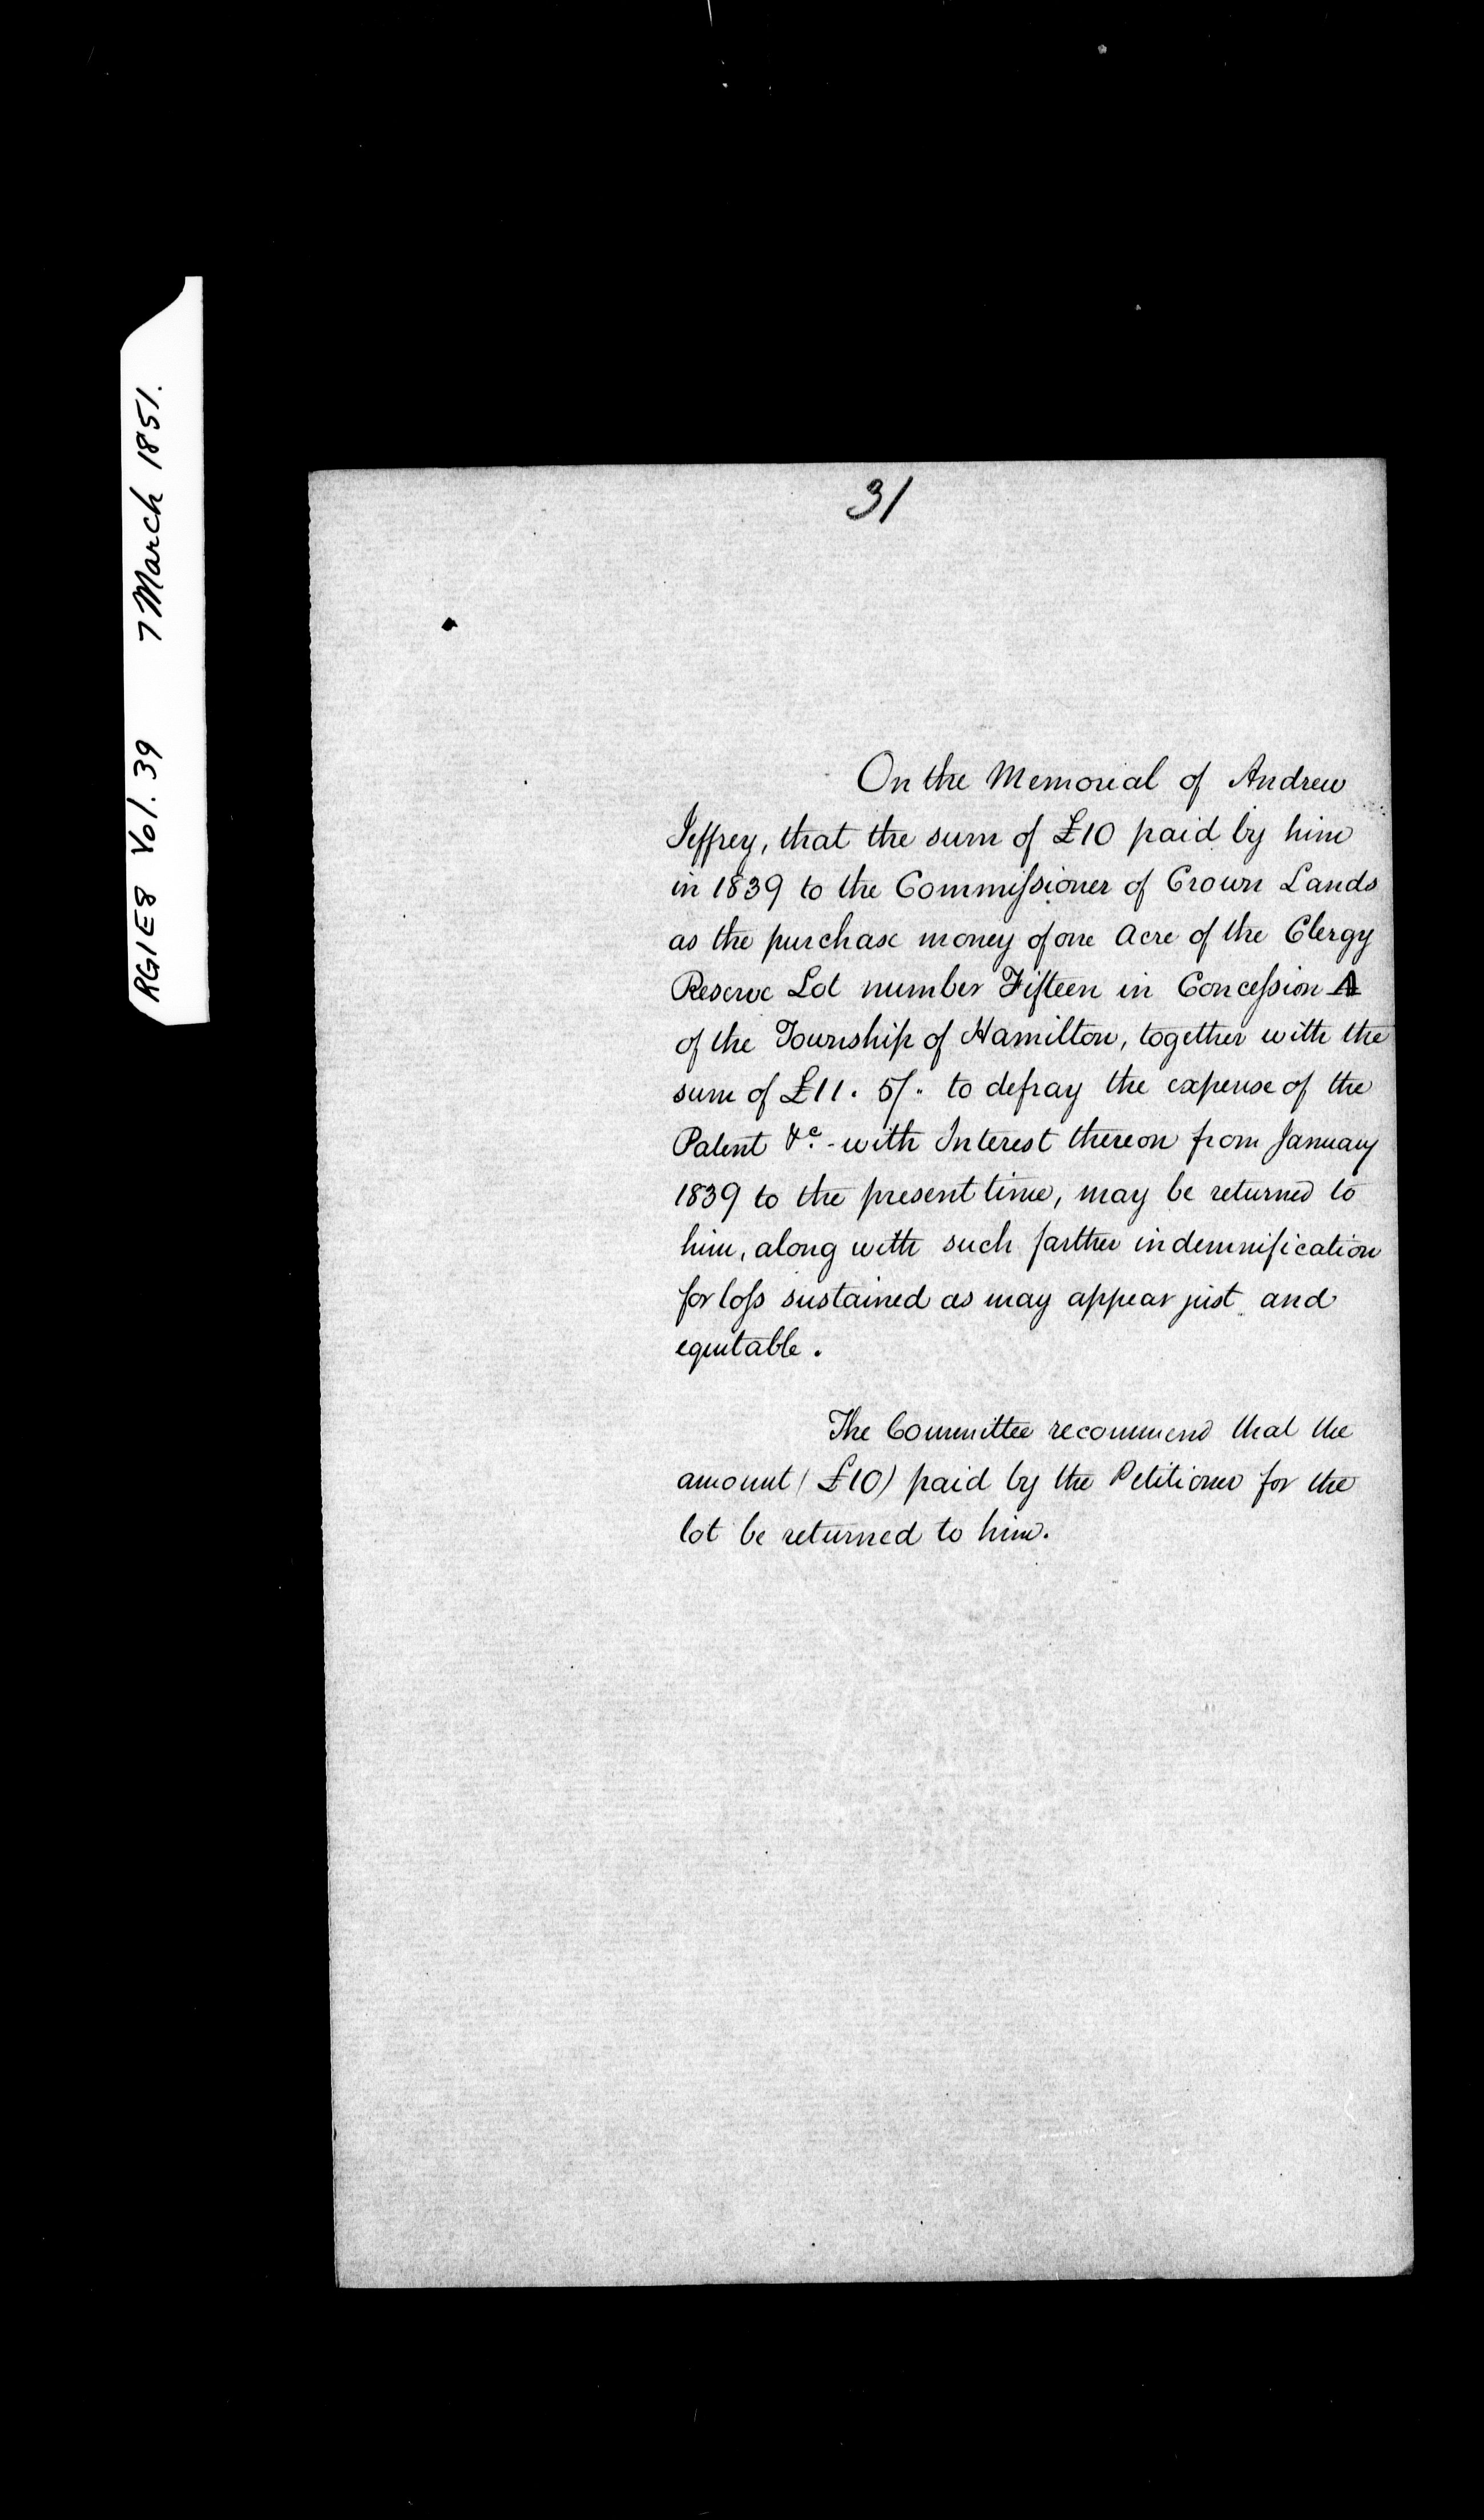 RG1E8 Vol. 39 7 March 1851.
31
On the Memorial of Andrew
Jeffrey, that the sum of £10 paid by him
in 1839 to the Commiſsioner of Crown Lands
as the purchase money of one Acre of the Clergy
Reserve Lot number Fifteen in Conceſsion A
of the Township of Hamilton, together with the
sum of £11. 5/. to defray the expense of the
Patent &c. - with Interest thereon from January
1839 to the present time, may be returned to
him, along with such farther indemnification
for loſs sustained as may appear just and
equitable.
The Committee recommend that the
amount (£10) paid by the Petitioner for the
lot be returned to him.